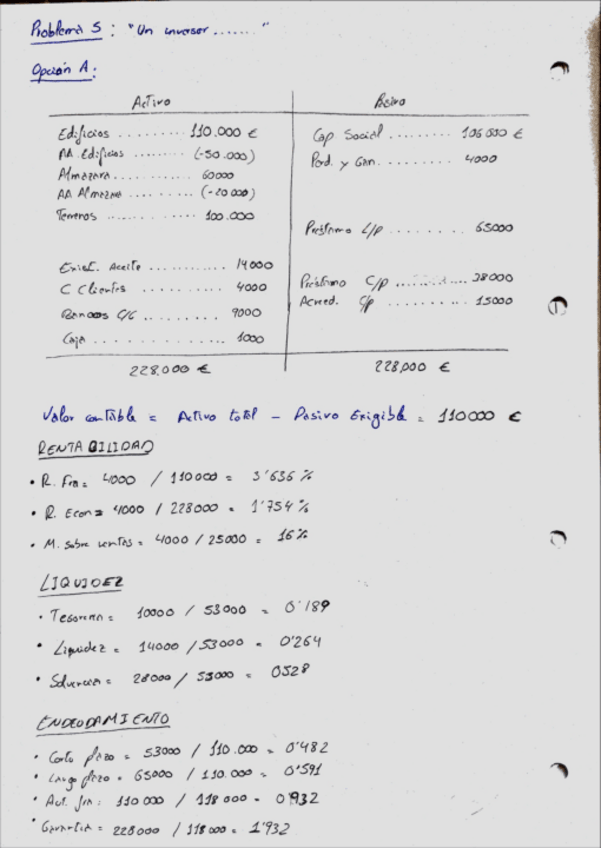 Problema 5 : "Un inversor ......."
Opción A :
Activo Pasivo
Edificios ......... 110.000 € Cap Social ......... 106 000 €
AA Edificios ........ (-50.000) Perd. y Gan. ........ 4000
Almazara ............ 60000
AA Almazara .......... (-20 000)
Terrenos ............. 100.000
Préstamo L/p ........ 65000
Exist. Aceite ........... 14000
C Clientes .......... 4000 Préstamo C/p ............. 38000
Bancos C/C ......... 9000 Acreed. C/p .......... 15000
Caja ............. 1000
228.000 € 228,000 €
Valor contable = Activo total - Pasivo Exigible = 110000 €
RENTABILIDAD
• R. Fin = 4000 / 110000 = 3'636 %
• R. Econ = 4000 / 228000 = 1'754 %
• M. sobre ventas = 4000 / 25000 = 16 %
LIQUIDEZ
• Tesoreria = 10000 / 53000 = 0'189
• Liquidez = 14000 / 53000 = 0'264
• Solvencia = 28000 / 53000 = 0528
ENDEUDAMIENTO
• Corto plazo = 53000 / 110.000 = 0'482
• Largo plazo = 65000 / 110.000 = 0'591
• Aut. fin : 110 000 / 118 000 = 0'932
• Garantia = 228000 / 118000 = 1'932